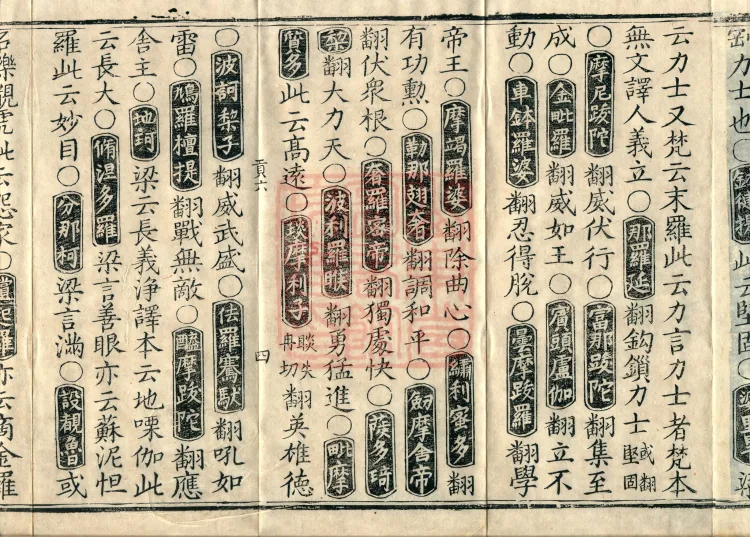 力士也○
此云堅固○
云力士又梵云末羅此云力言力士者梵本
無文譯人義立○那羅延翻鈎鎖力士或翻堅固
○摩尼跋陀翻威伏行○富那跋陀翻集至
成○金毗羅翻威如王○賓頭盧伽翻立不
動○車鉢羅婆翻忍得脫○曇摩跋羅翻學
帝王○摩竭羅婆翻除曲心○繡利蜜多翻
有功勲○勤那翅奢翻調和平○劒摩舍帝
翻伏衆根○奢羅蜜帝翻獨處快○薩多琦
梨翻大力天○波利羅睺翻勇猛進○毗摩
質多此云高遠○睒摩利子睒失冉切翻英雄德
貢六 四
○波訶梨子翻威武盛○佉羅騫馱翻吼如
雷○鳩羅檀提翻戰無敵○醯摩跋陀翻應
舍主○地珂梁云長義淨譯本云地㗚伽此
云長大○脩涅多羅梁言善眼亦云蘇泥怛
羅此云妙目○分那柯梁言滿○設覩魯或
此云怨家○亦云商企羅